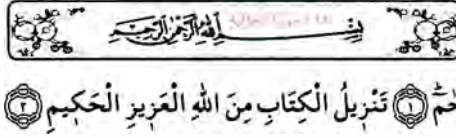 بِسْمِ اللهِ الرَّحْمٰنِ الرَّحِيمِ
حٰمٓ ۝١ تَنْزِيلُ الْكِتَابِ مِنَ اللهِ الْعَزِيزِ الْحَكِيمِ ۝٢